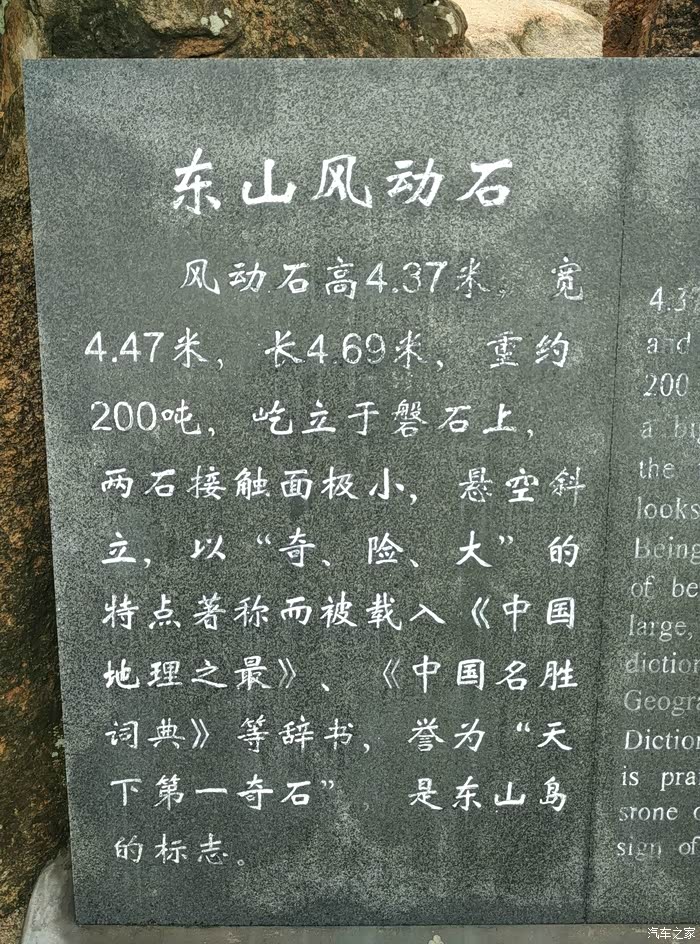 东山风动石
风动石高4.37米。宽
4.47米，长4.69米，重约
200吨，屹立于磐石上，
两石接触面极小，悬空斜
立，以“奇、险、大”的
特点著称而被载入《中国
地理之最》、《中国名胜
词典》等辞书，誉为“天
下第一奇石”，是东山岛
的标志。
4.37
and
200
a
the
looks
Being
of be
large,
diction
Geogra
Diction
is pra
stone o
sign of
汽车之家